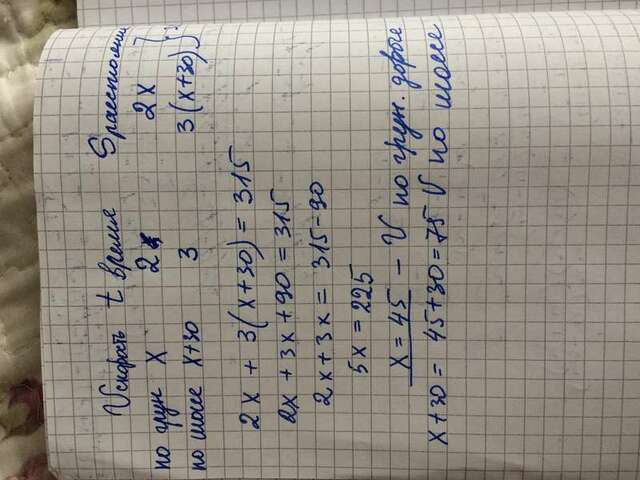 V скорость t время S расстояние
по грун x 2 2x
по шоссе x+30 3 3(x+30)
2x + 3(x+30) = 315
2x + 3x + 90 = 315
2x + 3x = 315-90
5x = 225
x = 45 - V по грун. дороге
x+30 = 45+30 = 75 V по шоссе